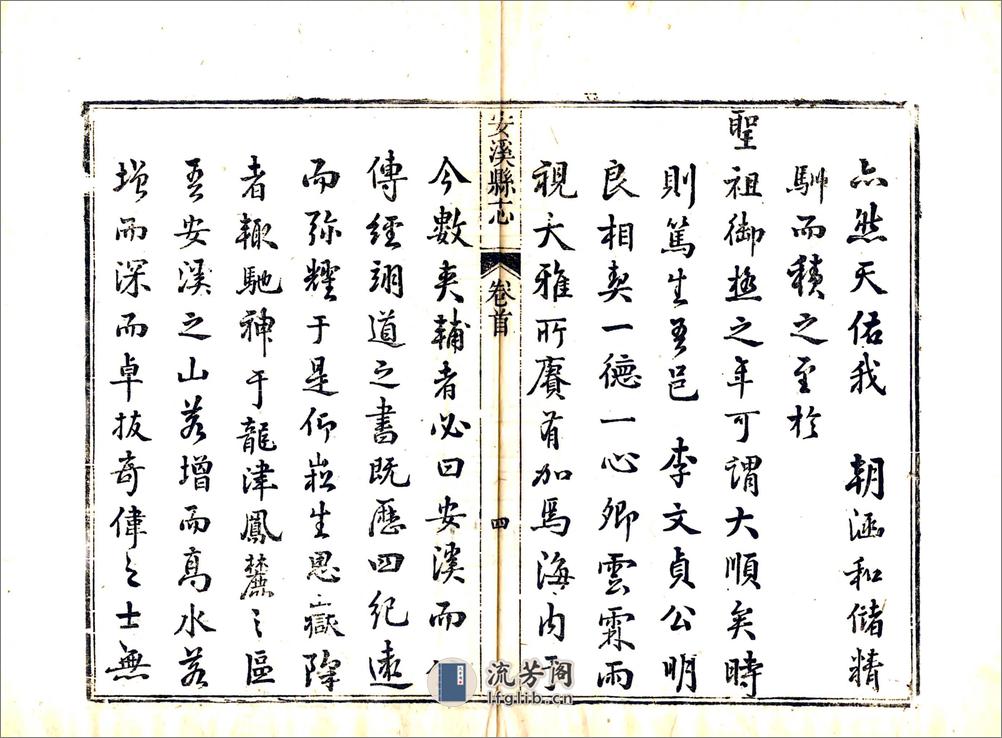 亦然天佑我 朝涵和儲精
馴而積之至於
聖祖御極之年可謂大順矣時
則篤生吾邑 李文貞公明
良相契一德一心卿雲霖雨
視大雅所賡有加焉海内于
安溪縣志 卷首 四
今數夾輔者必曰安溪而
傳經翊道之書既歷四紀遠
而弥耀于是仰崧生思嶽降
者輙馳神于龍津鳳麓之區
吾安溪之山若增而高水若
增而深而卓拔奇偉之士無
流芳阁
lfglib.cn